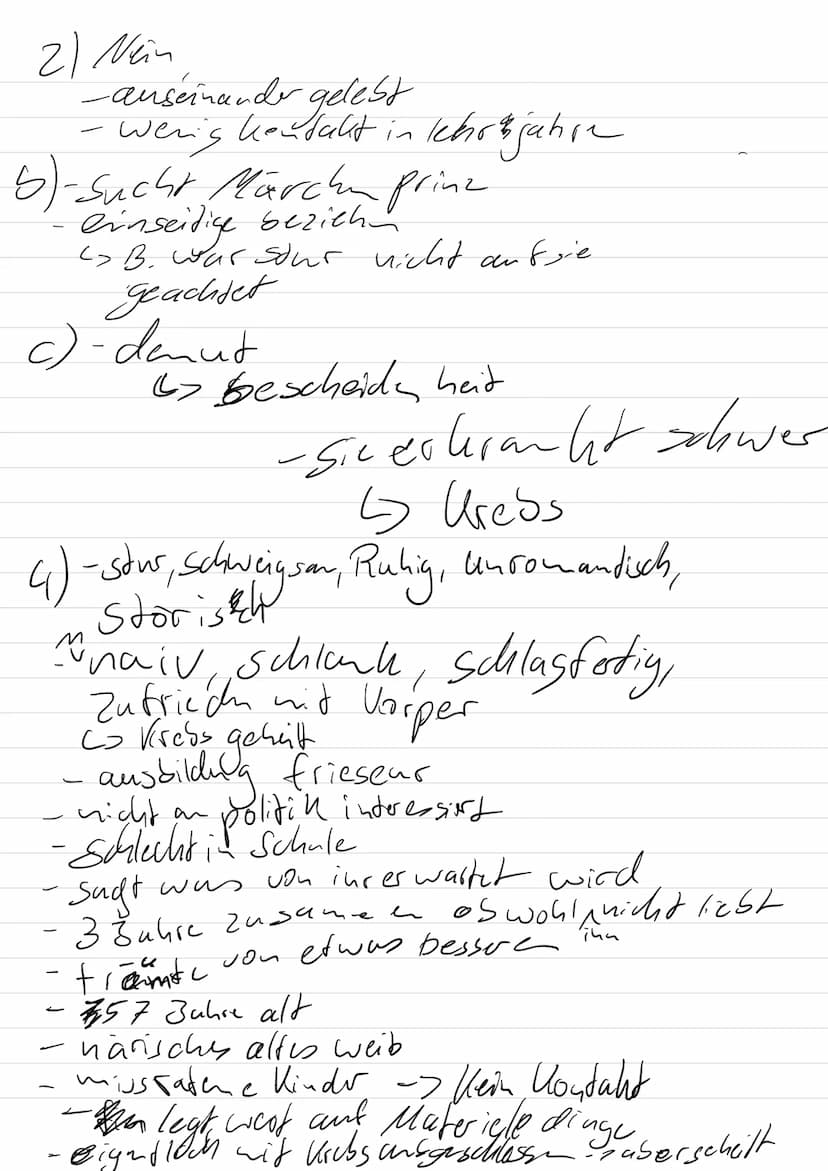 2) Nein
- auseinander gelebt
- wenig kontakt in lehrjahre
b) - sucht Märchen prinz
- einseitige beziehn
↳ B. war stur nicht auf sie
geachtet
c) - demut
↳ bescheidenheit
- sie erkrankt schwer
↳ Krebs
4) - stur, schweigsam, Ruhig, unromandisch,
störisch
- naiv, schlank, schlagfertig,
zufrieden mit Körper
↳ Krebs geheilt
- ausbildung frieseur
- nicht an politik interessirt
- schlecht in Schule
- sagt was von ihr erwartet wird
- 3 Jahre zusamen obwohl ihn nicht liebt
- träumte von etwas besseren
- 57 Jahre alt
- närisches altes weib
- missratene Kinder -> Kein Kontakt
- legt wert auf Materiele dinge
- eigendlich mit Krebs